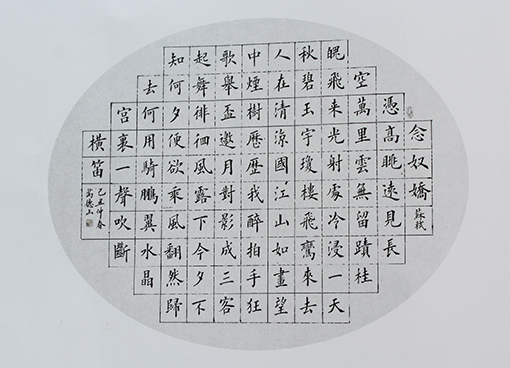 念奴嬌 蘇軾
憑高眺遠見長
空萬里雲無留蹟桂
魄飛来光射處冷浸一天
秋碧玉宇瓊樓飛鸞來去
人在清涼國江山如畫望
中煙樹歷歷我醉拍手狂
歌舉盃邀月對影成三客
起舞徘徊風露下今夕不
知何夕便欲乘風翻然歸
去何用騎鵬翼水晶
宮裏一聲吹斷
橫笛
丑仲春
德山